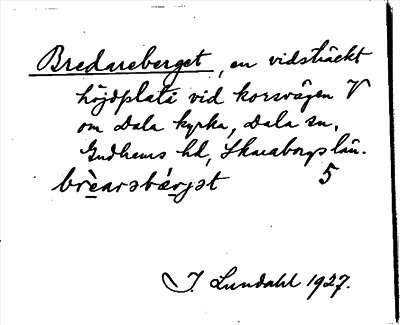 Bredareberget, en vidsträckt
höjdplatå vid korsvägen V
om Dala kyrka, Dala sn,
Gudhems hd, Skaraborgs län.
brèarəbæ̀rjət 5
J. Lundahl 1927.